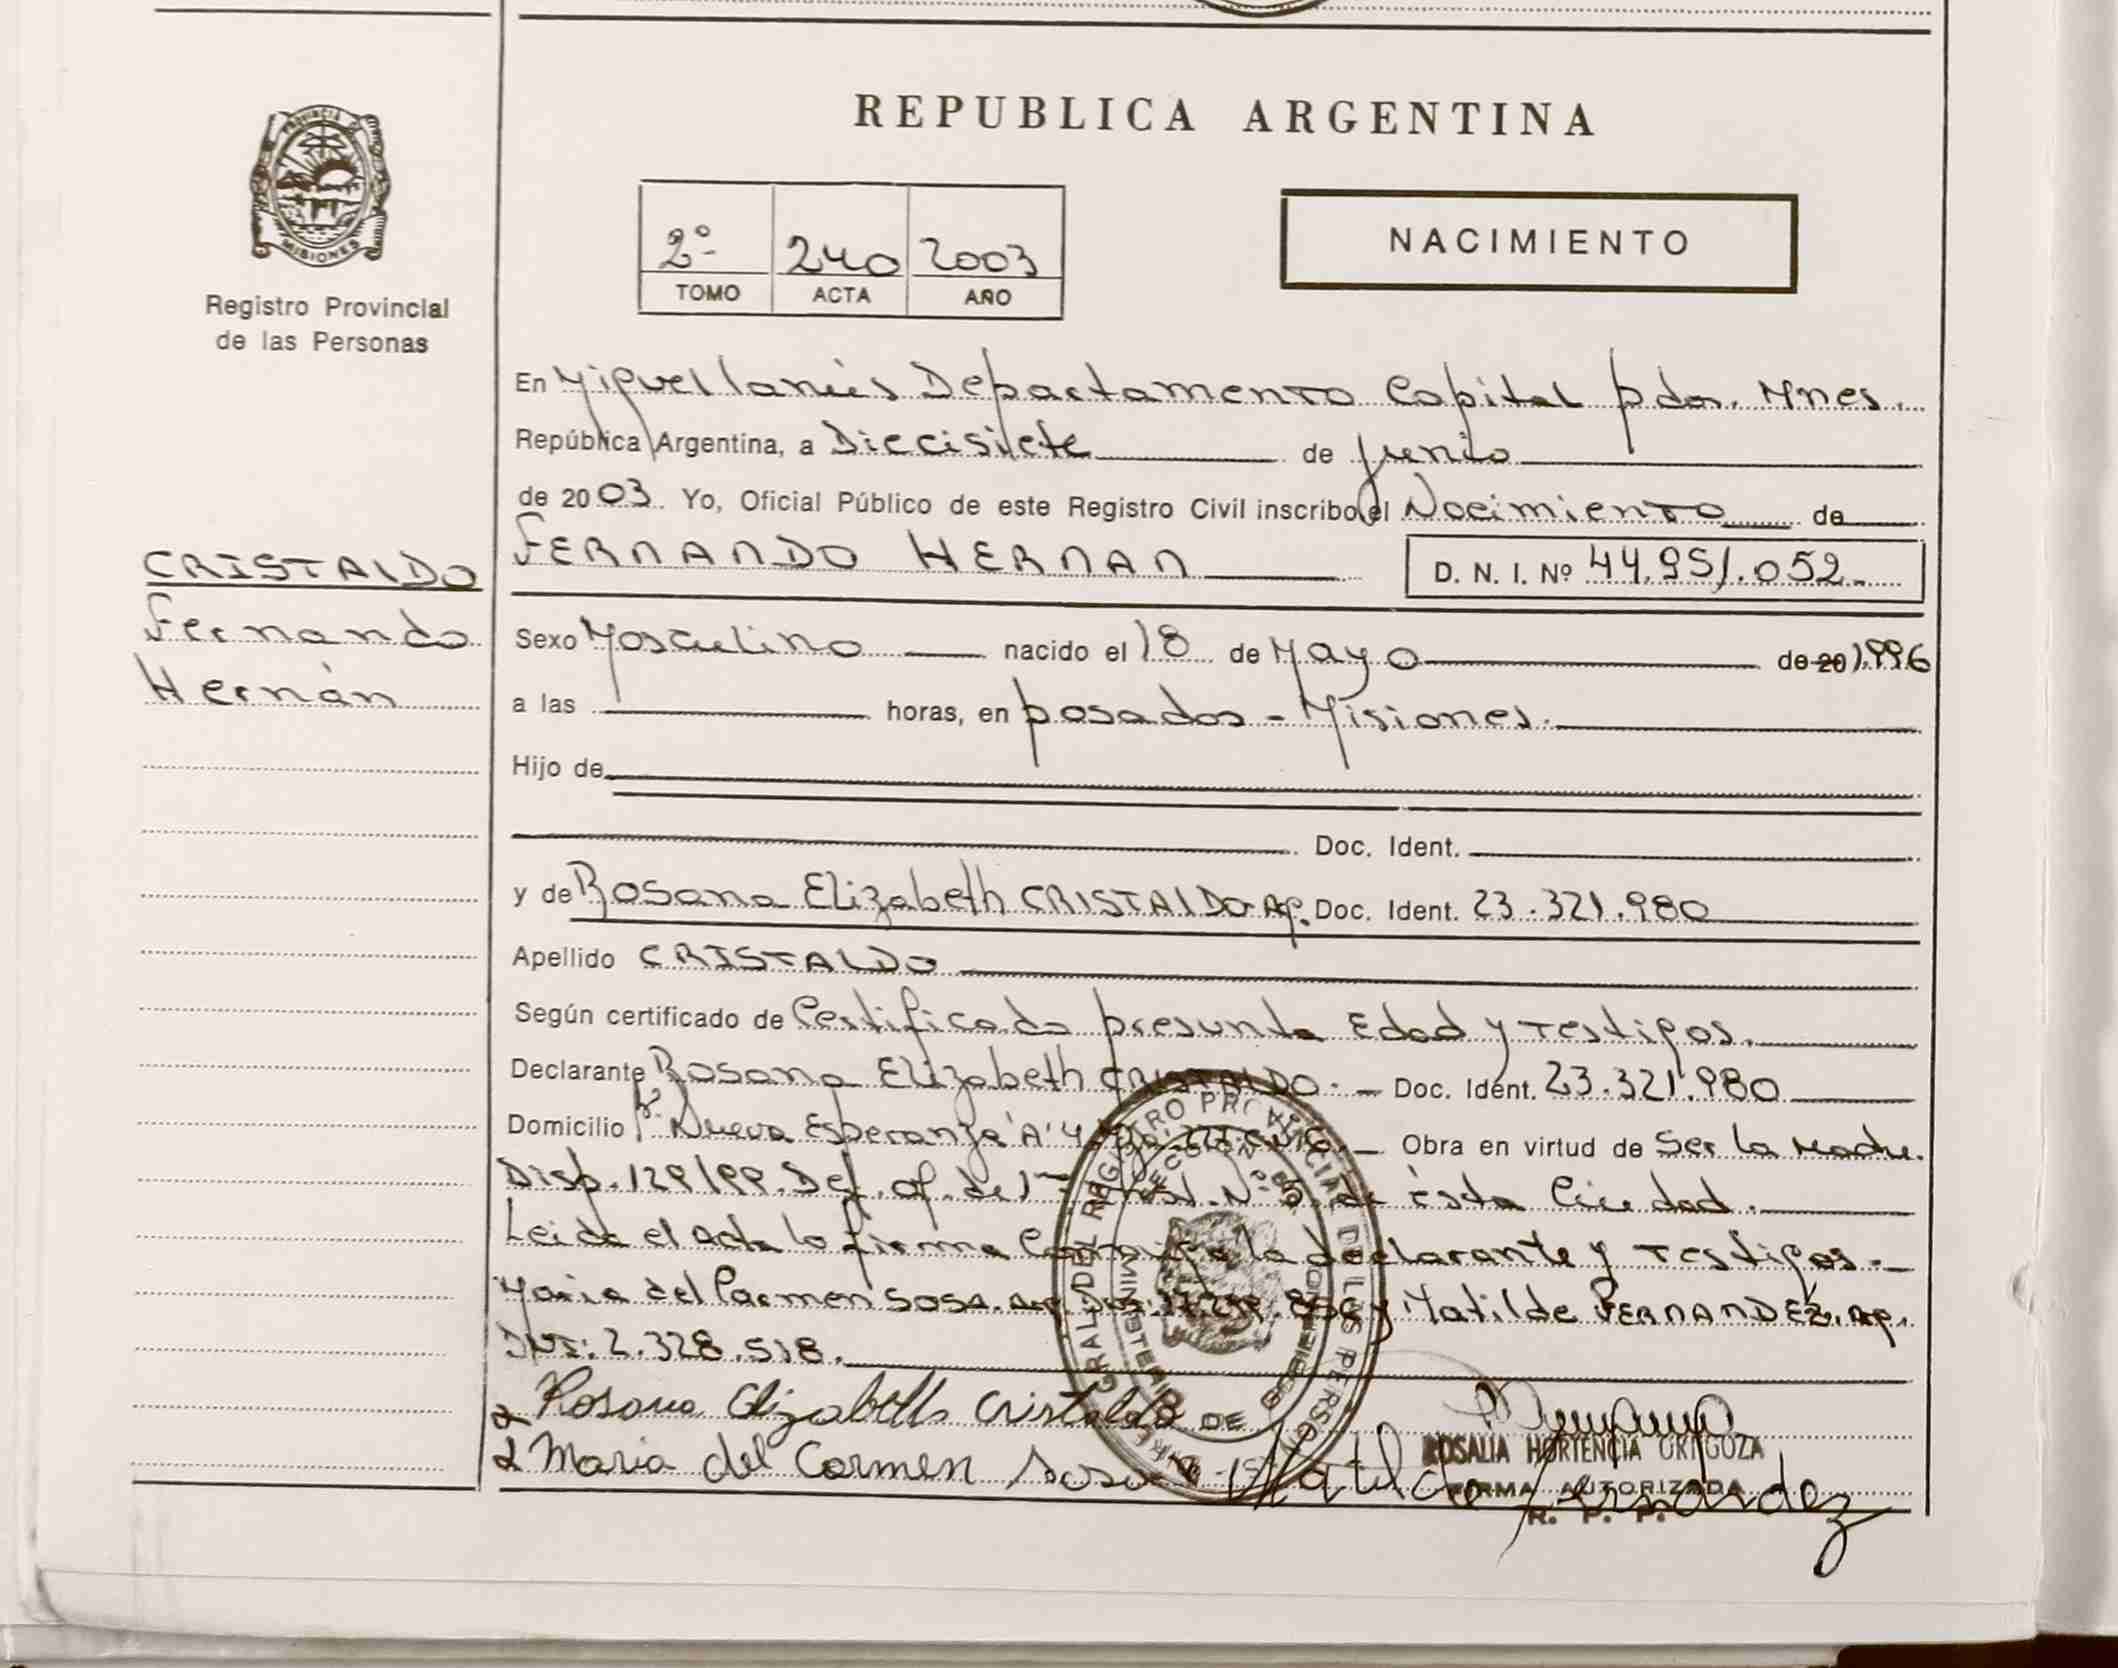 PROVINCIA DE
MISIONES
Registro Provincial
de las Personas
CRISTALDO
Fernando
Hernán
REPUBLICA ARGENTINA
2º 240 2003
TOMO ACTA AÑO
NACIMIENTO
En Miguel lanús Departamento Capital pdas. Mnes.
República Argentina, a Diecisiete de junio
de 2003. Yo, Oficial Público de este Registro Civil inscribo el Nacimiento de
FERNANDO HERNAN D. N. I. Nº 44.951.052.-
Sexo Masculino nacido el 18 de Mayo de 20 1.996
a las horas, en posadas - Misiones.
Hijo de
Doc. Ident.
y de Rosana Elizabeth CRISTALDO Ap. Doc. Ident. 23.321.980
Apellido CRISTALDO
Según certificado de Certificado presunta Edad y Testigos.
Declarante Rosana Elizabeth CRISTALDO.- Doc. Ident. 23.321.980
Domicilio Bº Nueva Esperanza "A" 4 Obra en virtud de Ser la Madre.
Disp. 129/99. Def. of. de 1 Inst. Nº de ésta Ciudad.
Leida el acta lo firma Conmigo la declarante y Testigos.-
Maria del Carmen SOSA. arg. y Matilde FERNANDEZ, Ap.
DNI: 2.328.518.
Rosana Elizabeth Cristaldo
Maria del Carmen Sosa Matilde Fernandez
ROSALIA HORTENCIA ORTIGOZA
FIRMA AUTORIZADA
R. P. P.